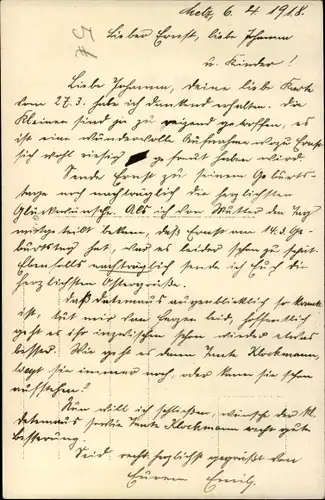 Metz, 6. 4. 1918.
Lieber Ernst, liebe Johanna
u. Kinder!
Liebe Johanna, deine liebe Karte
vom 27.3. habe ich dankend erhalten. Die
Kleinen sind ja zu reizend getroffen, es
ist eine wundervolle Aufnahme wozu Ernst
sich wohl riesig gefreut haben wird.
Sende Ernst zu seinem Geburts-
tage noch nachträglich die herzlichsten
Glückwünsche. Als ich von Mutter den Tag
mitgeteilt bekam, daß Ernst am 14.3. Ge-
burtstag hat, war es leider schon zu spät.
Ebenfalls nachträglich sende ich Euch die
herzlichsten Ostergrüße.
Daß augenblicklich so krank
ist, tut mir von Herzen leid, hoffentlich
geht es ihr inzwischen schon wieder etwas
besser. Wie geht es denn Tante Klockmann,
liegt sie immer noch, oder kann sie schon
aufstehen?
Nun will ich schließen, wünsche der kl.
sowie Tante Klockmann recht gute
Besserung.
Seid recht herzlichst gegrüßt von
Eurem Emil.